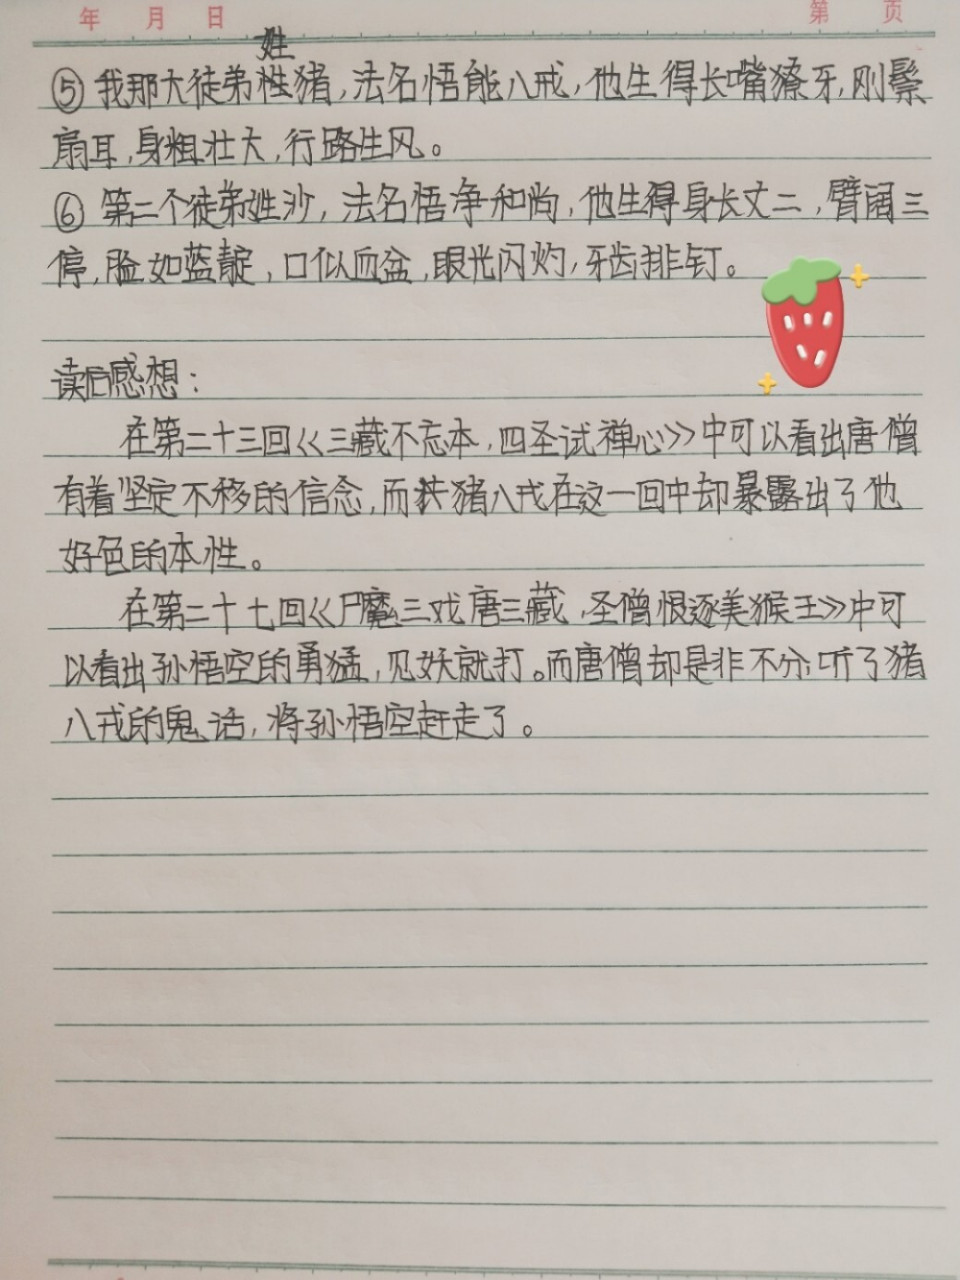 年 月 日 第 页
姓
⑤我那大徒弟性猪,法名悟能八戒,他生得长嘴獠牙,刚鬃
扇耳,身粗壮大,行路生风。
⑥第二个徒弟姓沙,法名悟净和尚,他生得身长丈二,臂阔三
停,脸如蓝靛,口似血盆,眼光闪灼,牙齿排钉。
读后感想:
在第二十三回《三藏不忘本,四圣试禅心》中可以看出唐僧
有着坚定不移的信念,而猪八戒在这一回中却暴露出了他
好色的本性。
在第二十七回《尸魔三戏唐三藏,圣僧恨逐美猴王》中可
以看出孙悟空的勇猛,见妖就打。而唐僧却是非不分,听了猪
八戒的鬼话,将孙悟空赶走了。